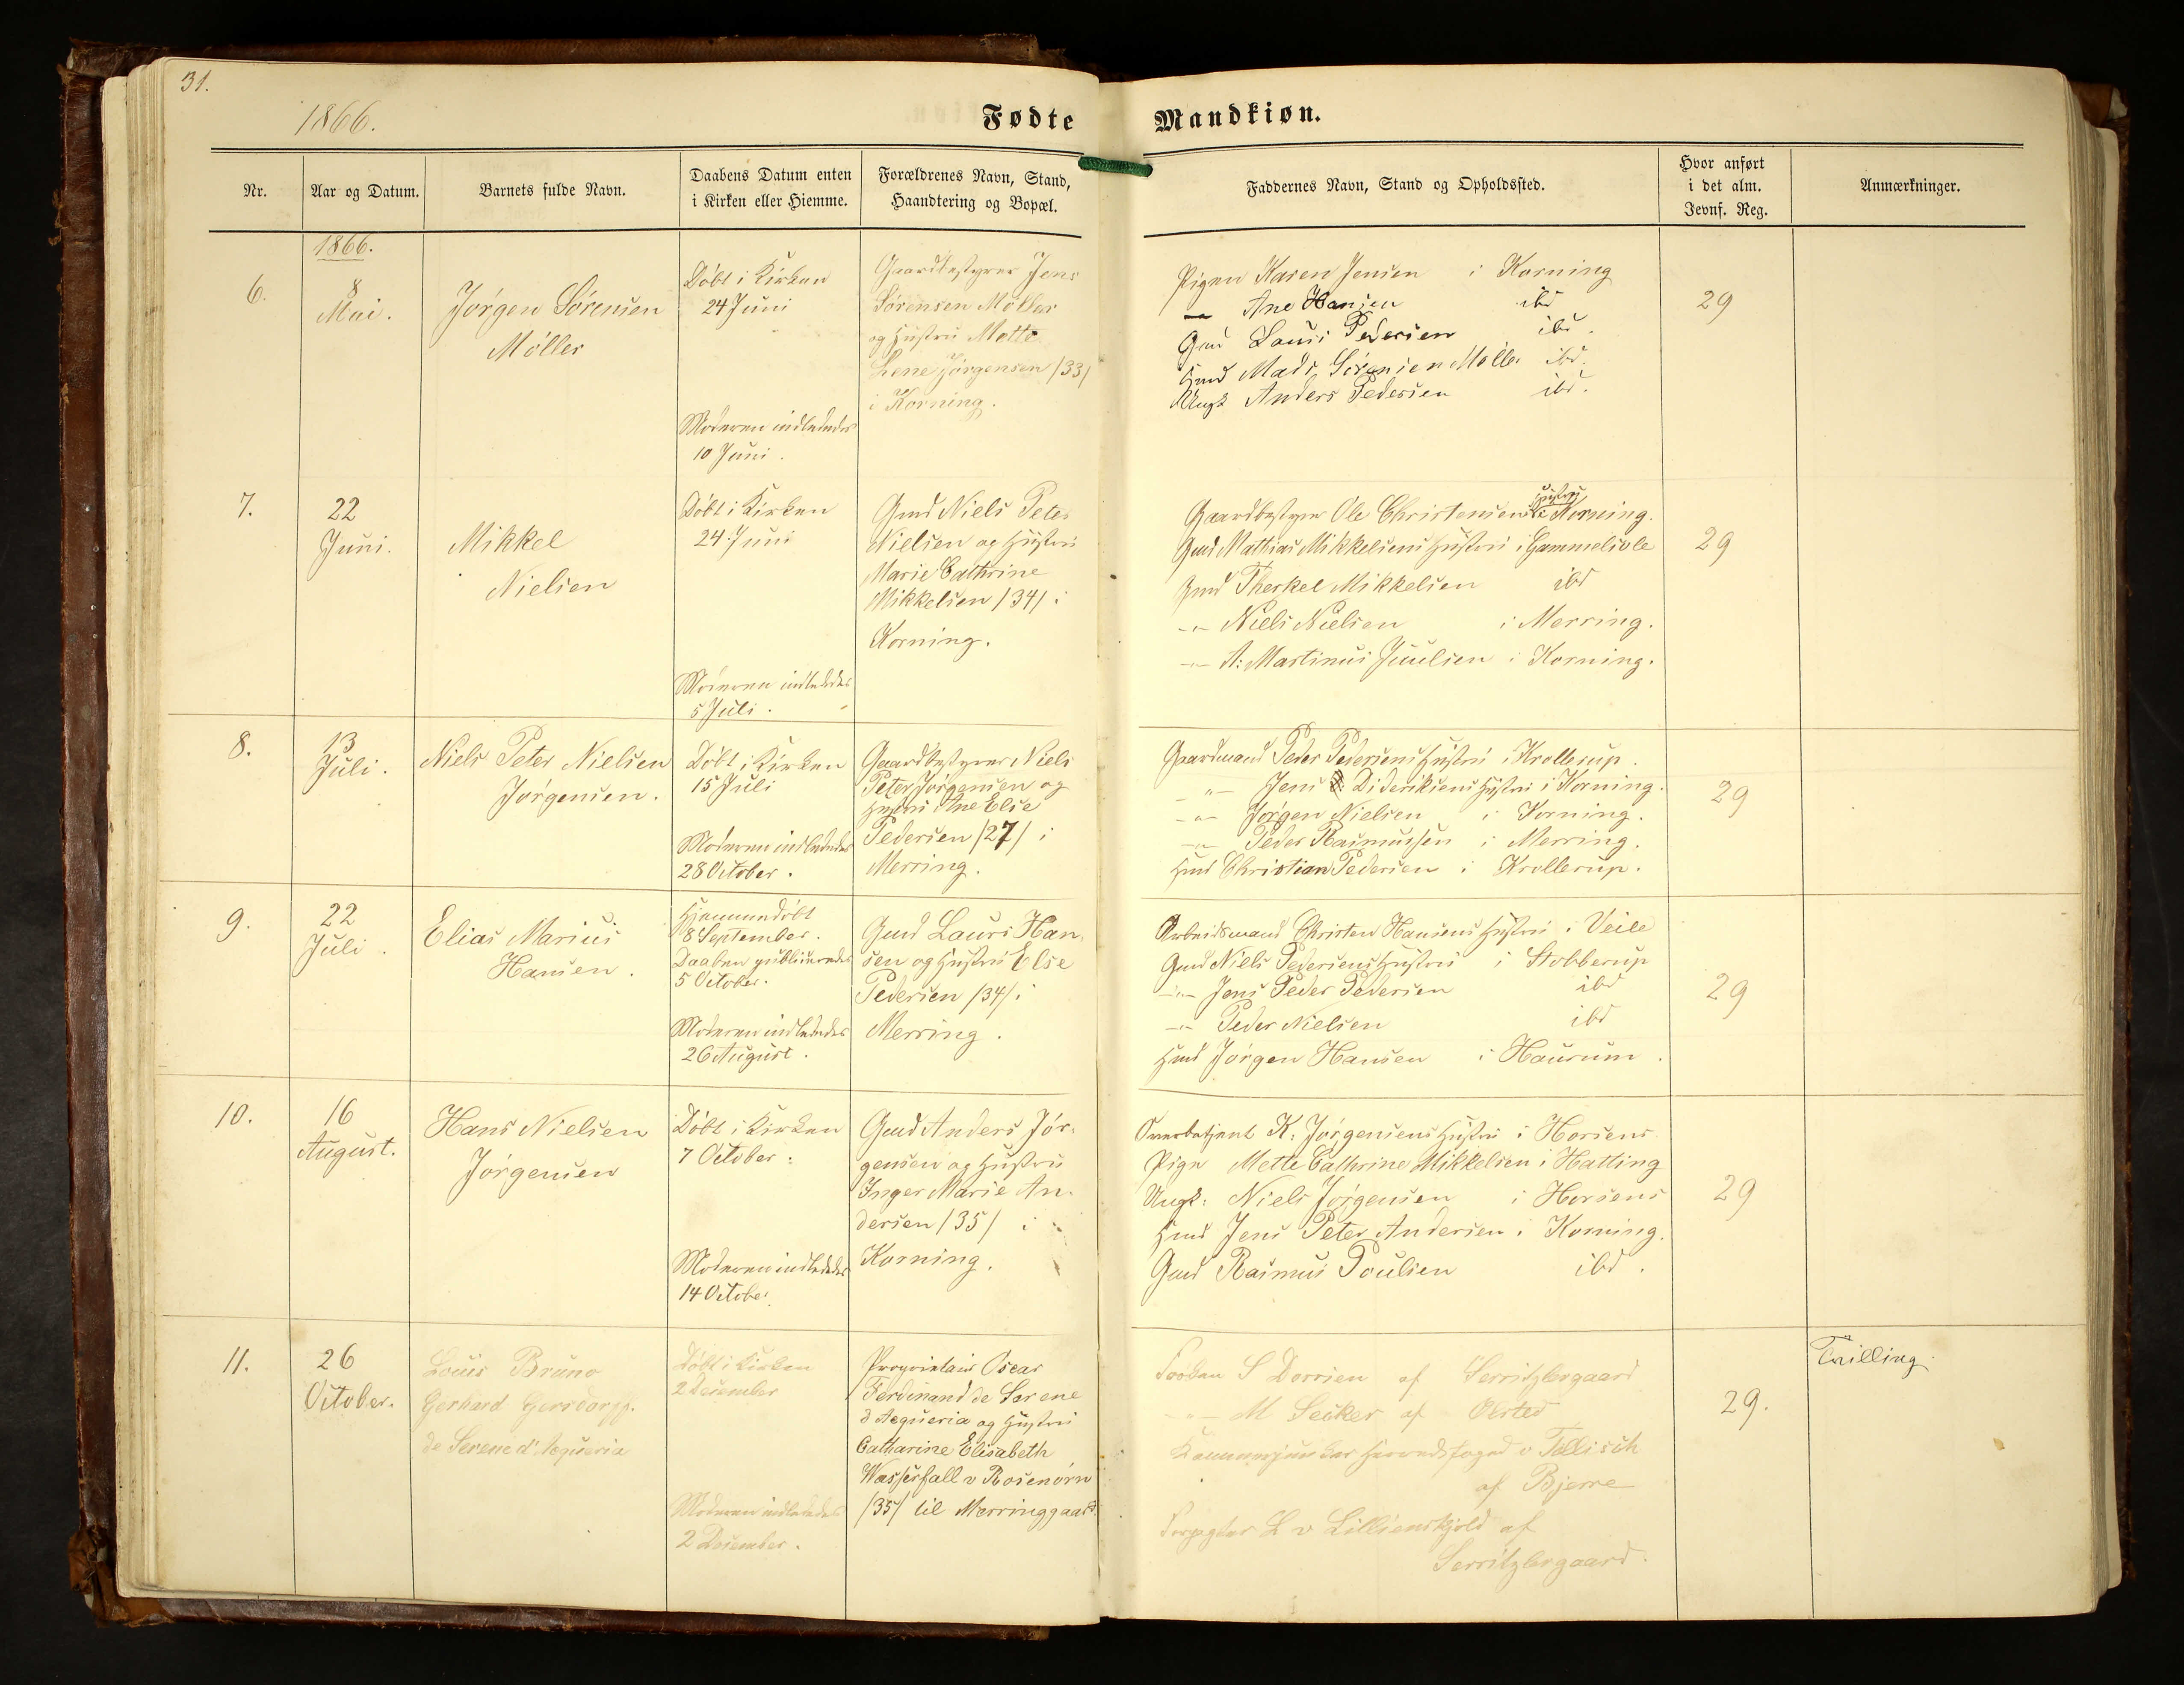 31.
1866.
Fødte
Mandkiøn.
Nr.
Aar og Datum.
Barnets fulde Navn.
Daabens Datum enten
i Kirken eller Hiemme.
Forældrenes Navn, Stand,
Haandtering og Bopæl.
Faddernes Navn, Stand og Opholdssted.
Hvor anført
i det alm.
Jevnf. Reg.
Anmærkninger.
1866.
6.
8
Mai.
Jørgen Sørensen
Møller
Døbt i Kirken
24 Juni
Moderen indlededes
10 Juni.
Gaardbestyrer Jens
Sørensen Møller
og Hustru Mette
Lene Jørgensen /33/
i Korning.
Pigen Karen Jensen i Korning
— Ane Hansen ibd
Gmd Laurs Pedersen ibd.
Hmd Mads Sørensen Møller ibd.
Ungk Anders Pedersen ibd.
29
7.
22
Juni.
Mikkel
Nielsen
Døbt i Kirken
24 Juni
Moderen indlededes
5 Juli.
Gmd Niels Peter
Nielsen og Hustru
Marie Cathrine
Mikkelsen /34/ i
Korning.
Gaardbestyrer Ole Christensens Hustru i Korning.
Gmd Mathias Mikkelsens Hustru i Gammelsole
Gmd Therkel Mikkelsen ibd
-"- Niels Nielsen i Merring.
-"- A: Martinus Juulsen i Korning.
29
8.
13
Juli.
Niels Peter Nielsen
Jørgensen.
Døbt i Kirken
15 Juli
Moderen indlededes
28 October.
Gaardbestyrer Niels
Peter Jørgensen og
Hustru Ane Else
Pedersen /27/ i
Merring.
Gaardmand Peder Pedersens Hustru i Krollerup.
-"- Jens Dideriksens Hustru i Korning.
-"- Jørgen Nielsen i Korning.
-"- Peder Rasmussen i Merring.
Hmd Christian Pedersen i Krollerup.
29
9.
22
Juli.
Elias Marius
Hansen.
Hjemmedøbt
8 September.
Daaben publiceredes
5 October.
Moderen indlededes
26 August.
Gmd Laurs Han-
sen og Hustru Else
Pedersen /34/ i
Merring.
Arbeidsmand Christen Hansens Hustru i Veile
Gmd Niels Pedersens Hustru i Stobberup
-"- Jens Peder Pedersen ibd
-"- Peder Nielsen ibd
Hmd Jørgen Hansen i Haurum.
29
10.
16
August.
Hans Nielsen
Jørgensen
Døbt i Kirken
7 October.
Moderen indlededes
14 October
Gmd Anders Jør-
gensen og Hustru
Inger Marie An-
dersen /35/ i
Korning.
Overbetjent K: Jørgensens Hustru i Horsens
Pige Mette Cathrine Mikkelsen i Hatting
Ungk: Niels Jørgensen i Horsens
Hmd Jens Peter Andersen i Korning.
Gmd Rasmus Poulsen ibd.
29
11.
26
October.
Louis Bruno
Gerhard Gersdorff
de Serene d' Acqueria
Døbt i Kirken
2 December
Moderen indlededes
2 December.
Proprietair Oscar
Ferdinand de Serene
d Acqueria og Hustru
Catharine Elisabeth
Wasserfall v Rosenørn
/35/ til Merringgaard.
Frøken S Dorrien af Serritzlevgaard
-"- M Secker af Ølsted
Kammerjunker Herredsfoged v Tillisch
af Bjerre
Forpagter L v Lillienskjold af
Serritzlevgaard.
29.
Tvilling